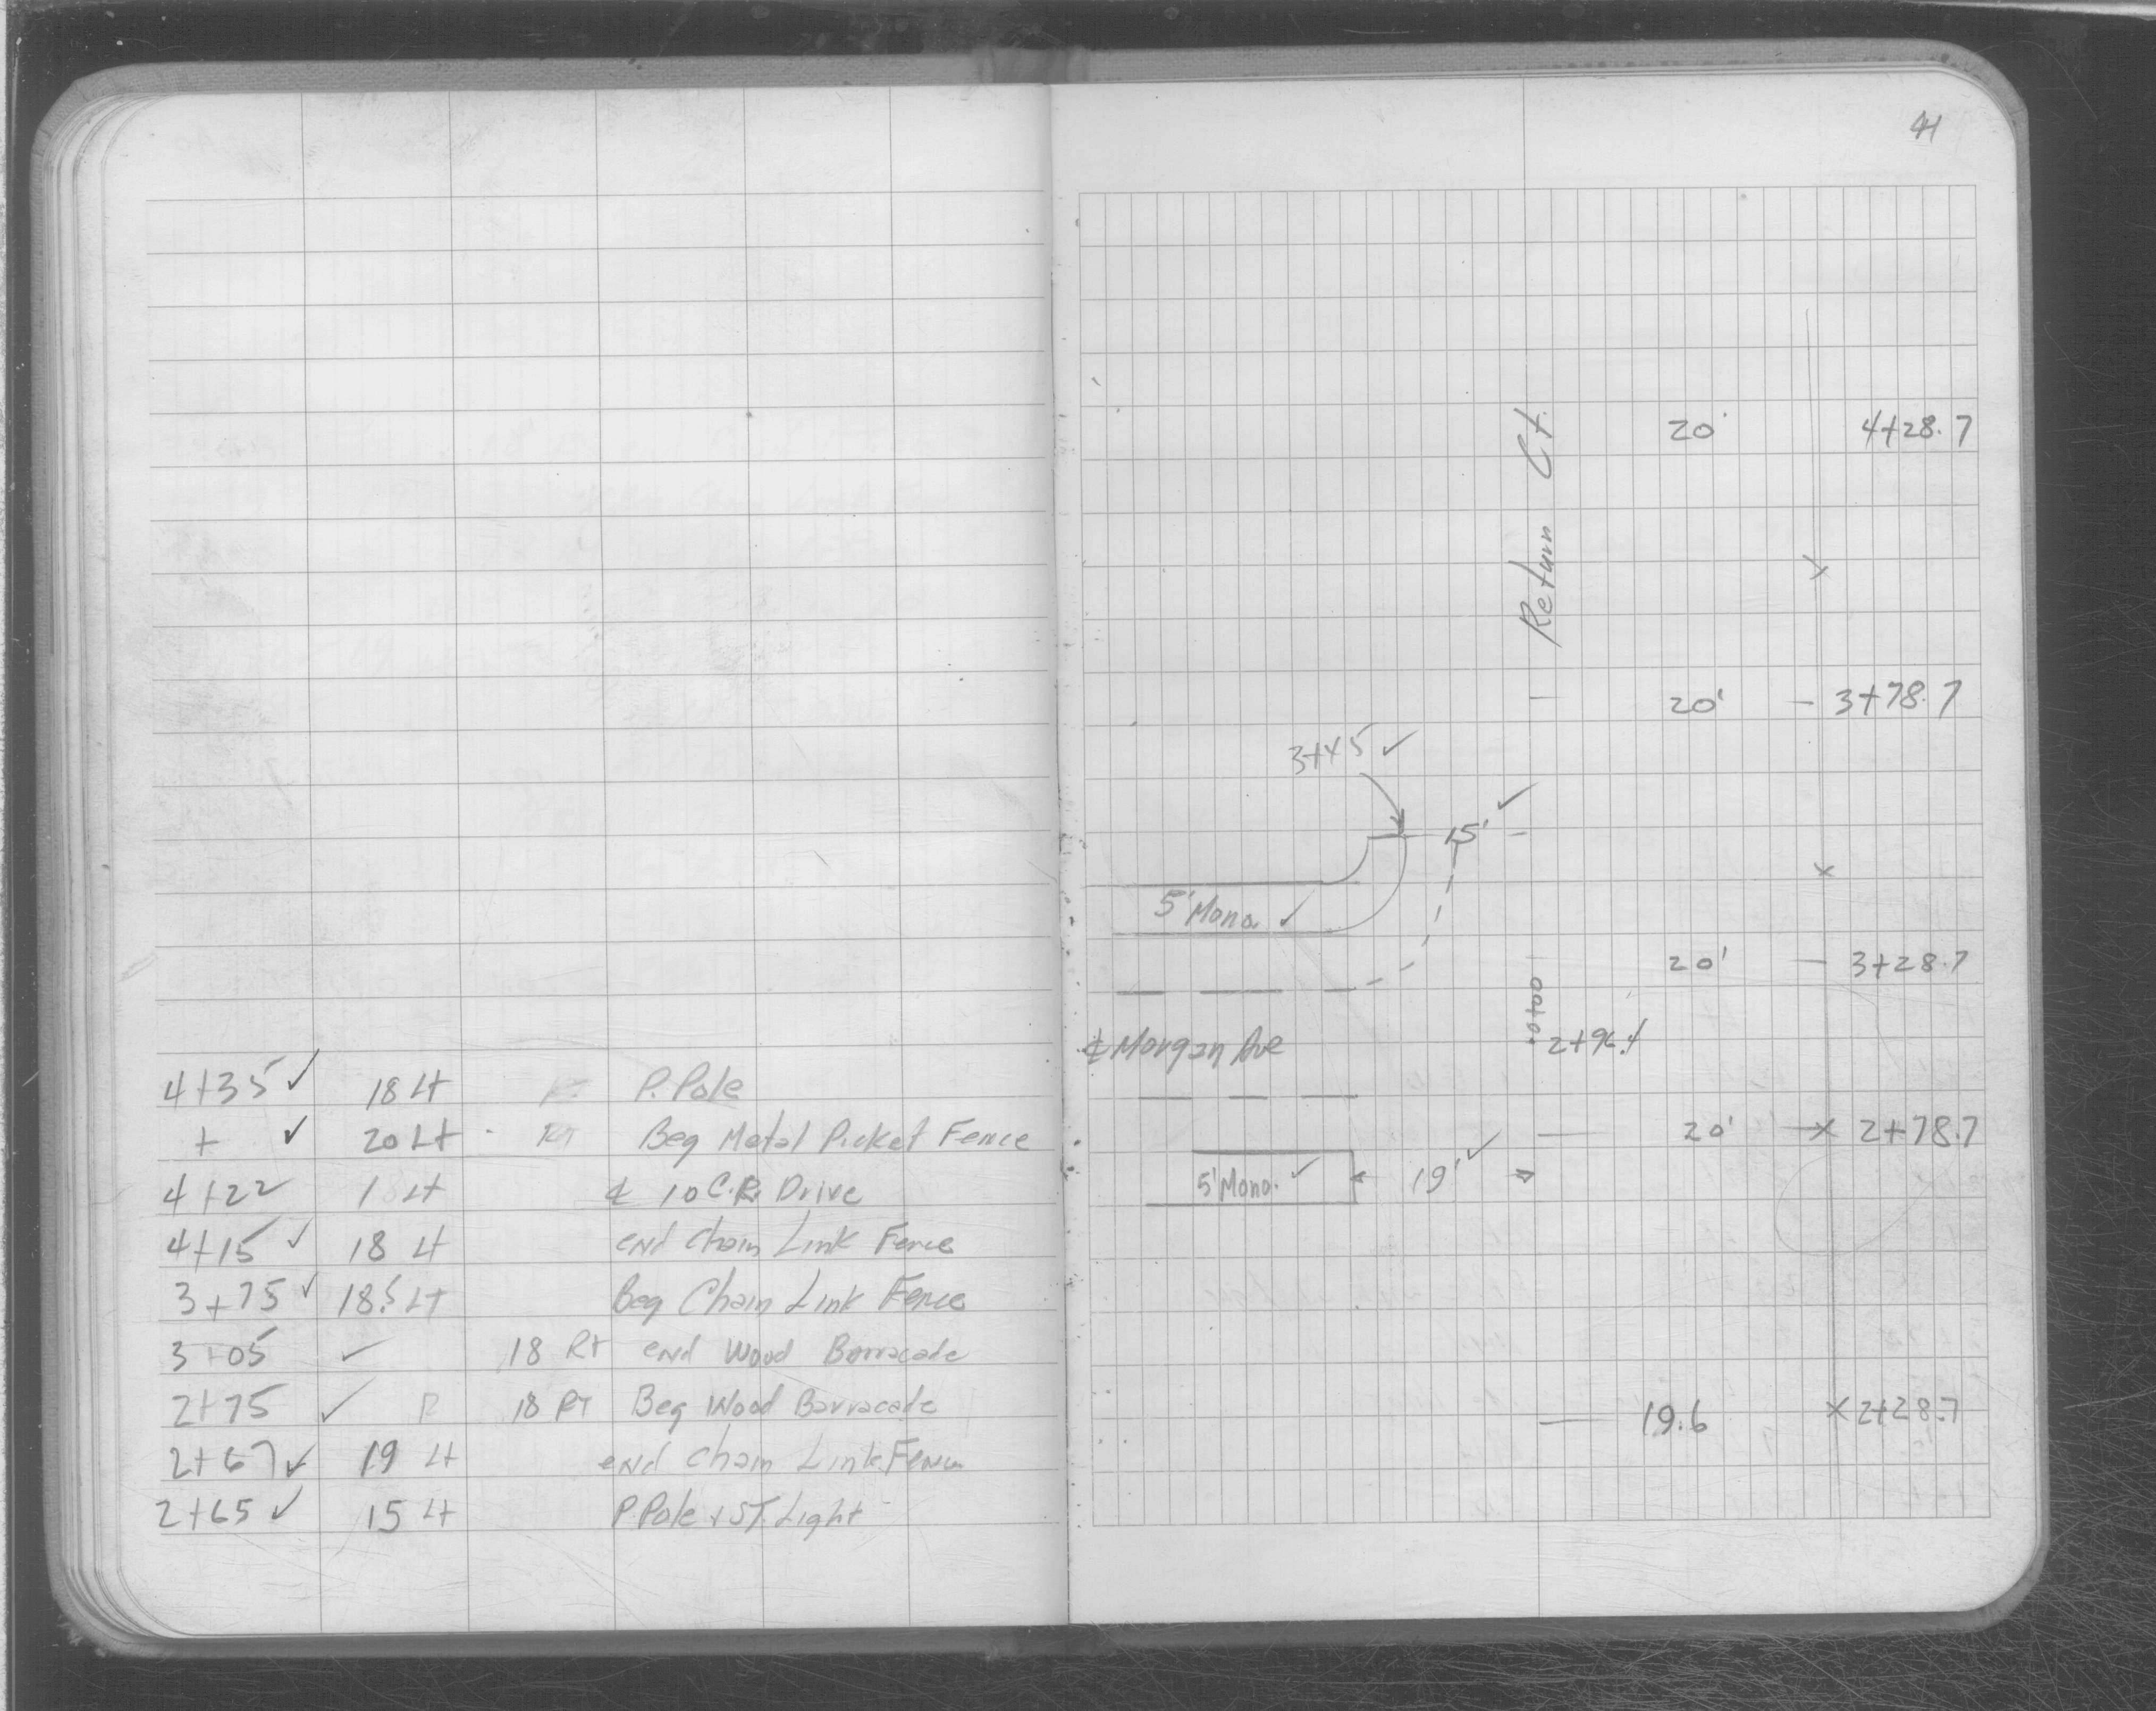 41
4+35 ✓ 18 Lt P. Pole
+ ✓ 20 Lt - RT Beg Metal Picket Fence
4+22 1 Lt ℄ 10 C.R. Drive
4+15 ✓ 18 Lt end Chain Link Fence
3+75 ✓ 18.5 LT Beg Chain Link Fence
3+05 ✓ 18 Rt end Wood Barracade
2+75 ✓ R 18 RT Beg Wood Barracade
2+67 ✓ 19 Lt end Chain Link Fence
2+65 ✓ 15 Lt P.Pole + ST. Light
Return Ct.
20' 4+28.7
20' - 3+78.7
3+45 ✓
15' ✓
5' Mono. ✓
20' - 3+28.7
0+00
℄ Morgan Ave 2+96.1
20' 2+78.7
5' Mono. ✓ 19' ✓
19.6 2+28.7